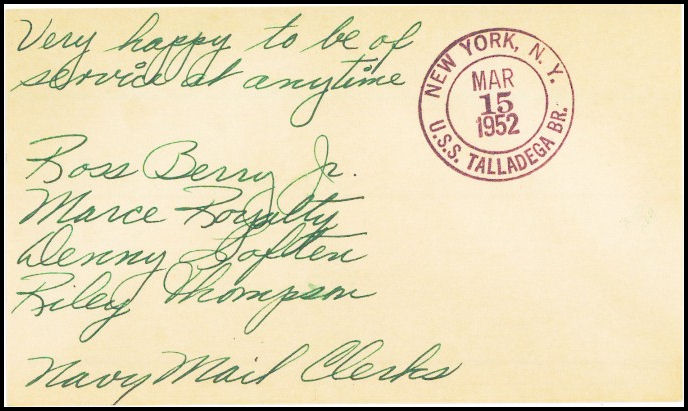 Very happy to be of
service at anytime
Ross Berry Jr.
Marce Royalty
Denny Loften
Riley Thompson
Navy Mail Clerks
NEW YORK, N. Y.
MAR
15
1952
U.S.S. TALLADEGA BR.